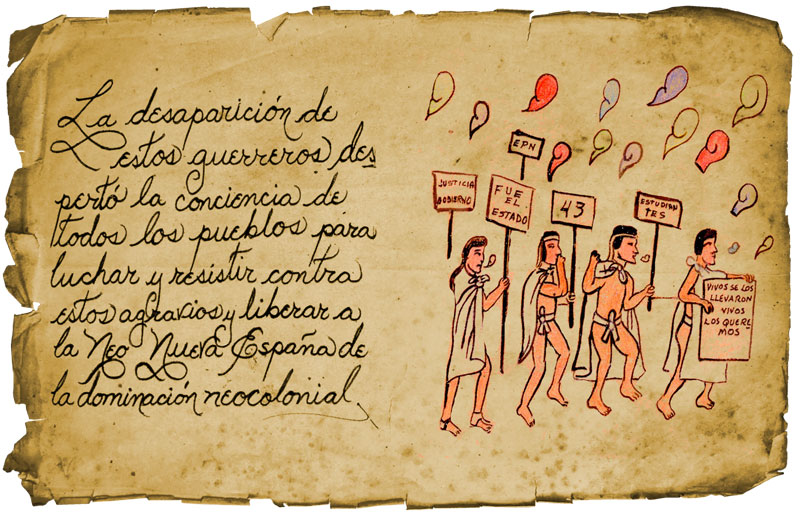 La desaparición de
estos guerreros des
pertó la conciencia de
todos los pueblos para
luchar y resistir contra
estos agravios y liberar a
la Neo Nueva España de
la dominación neocolonial.
EPN
JUSTICIA
GOBIERNO
FUE
EL
ESTADO
43
ESTUDIAN
TES
VIVOS SE LOS
LLEVARON
VIVOS
LOS QUERE
MOS